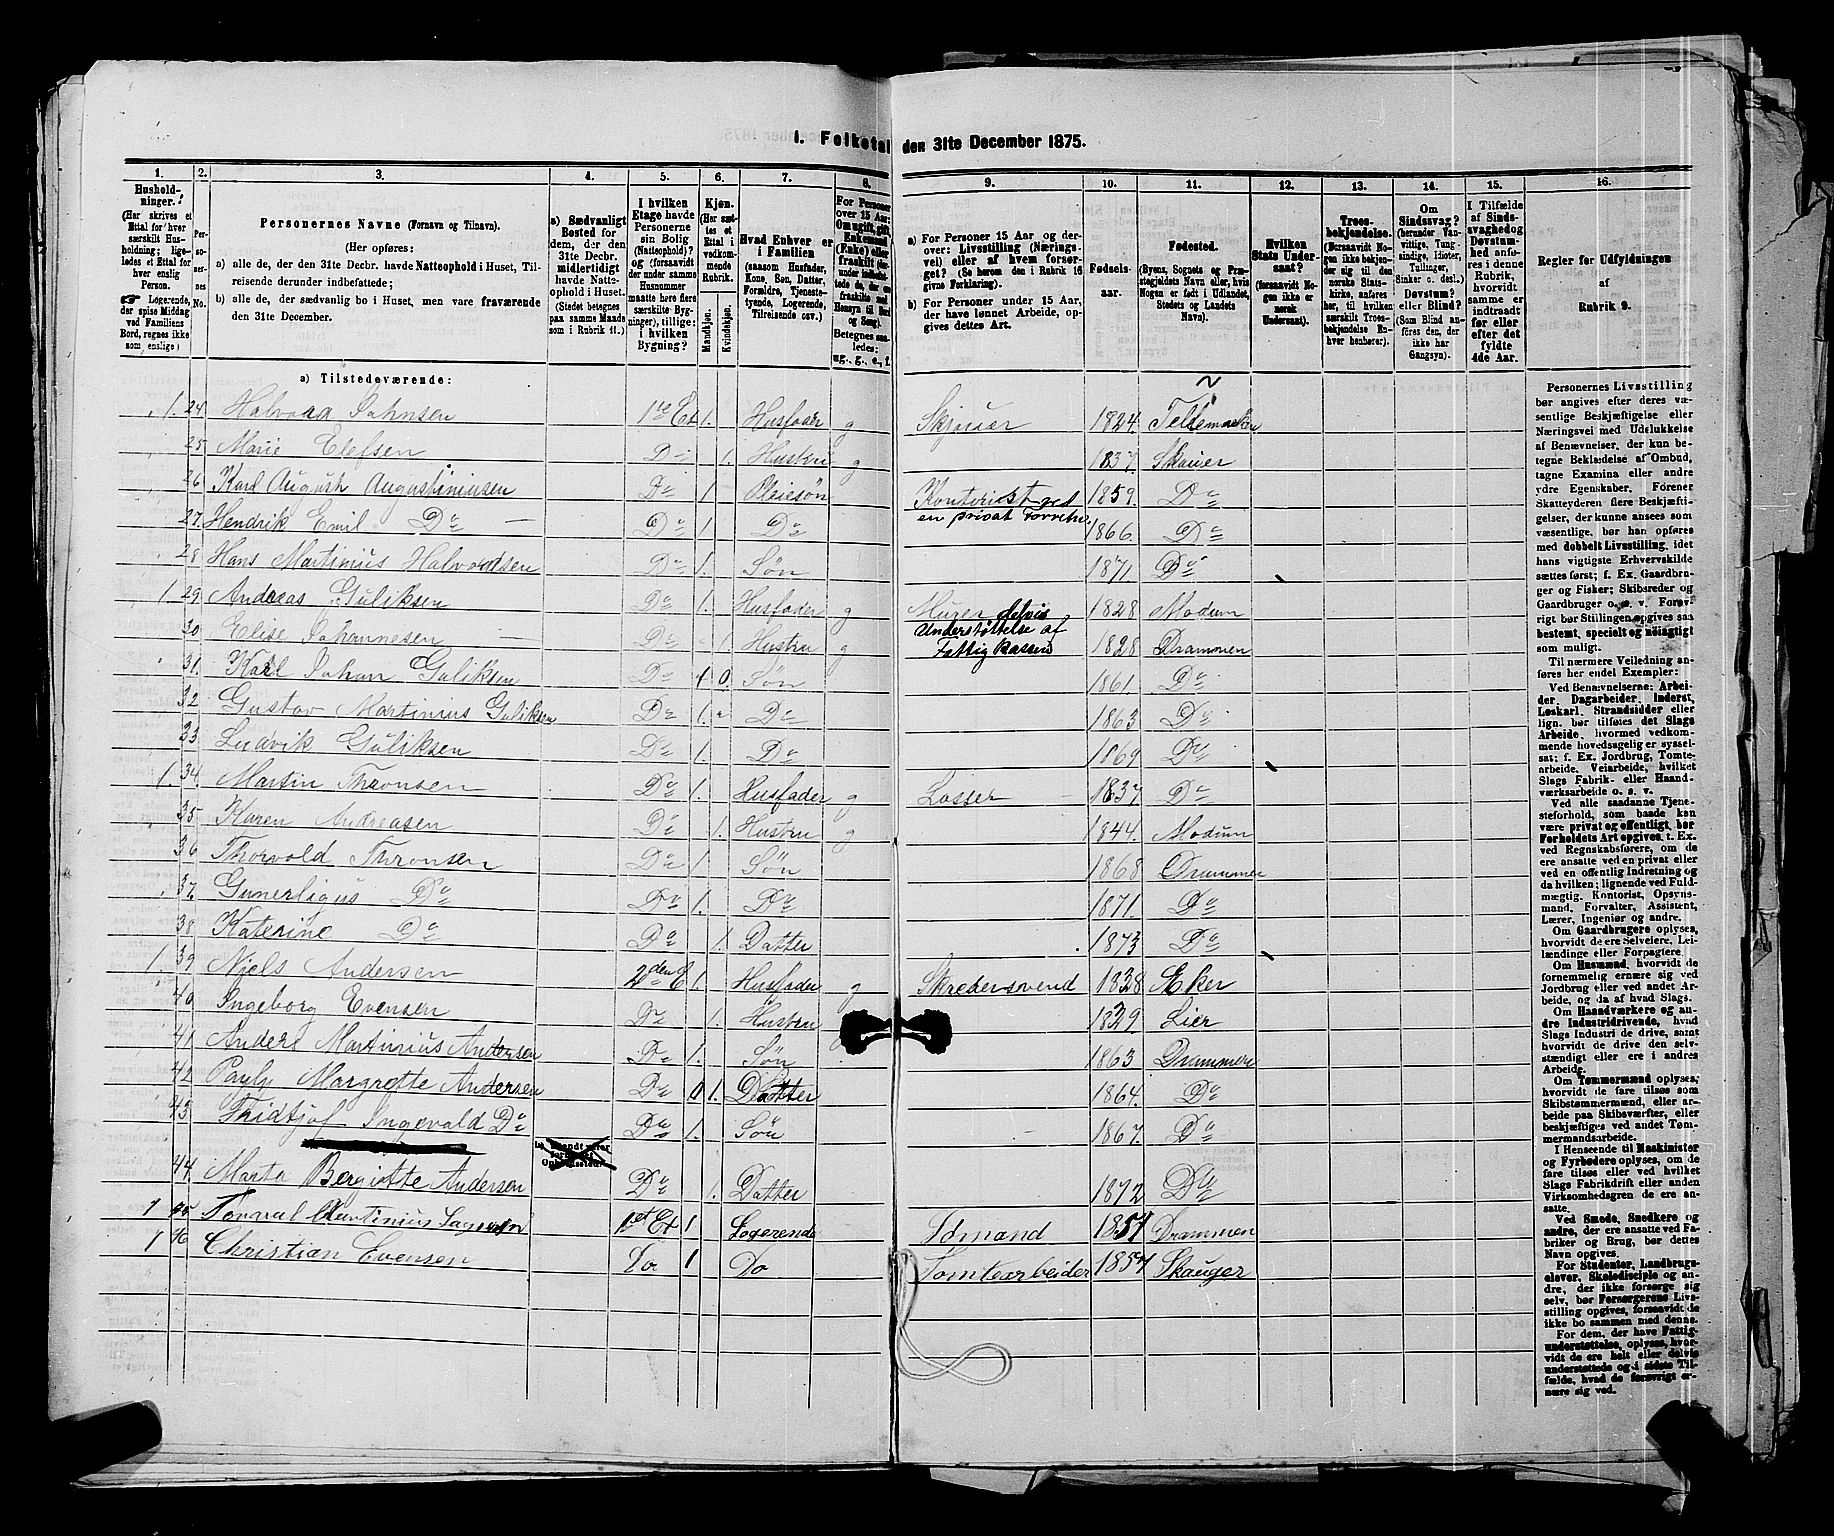 1. Folketal den 31te December 1875.
1. 2. 3. 4. 5. 6. 7. 8. 9. 10. 11. 12. 13. 14. 15. 16.
Hushold-
ninger.
(Her skrives et
Ettal for hver
særskilt Hus-
holdning; lige-
ledes et Ettal for
hver enslig
Person.
☞ Logerende,
der spise Middag
ved Familiens
Bord, regnes ikke
som enslige)
Per-
so-
ner-
nes
No.
Personernes Navne (Fornavn og Tilnavn).
(Her opføres:
a) alle de, der den 31te Decbr. havde Natteophold i Huset, Til-
reisende derunder indbefattede;
b) alle de, der sædvanlig bo i Huset, men vare fraværende
den 31te December.
a) Sædvanligt
Bosted for
dem, der den
31te Decbr.
midlertidigt
havde Natte-
ophold i Huset.
(Stedet betegnes
paa samme Maade
som i Rubrik 11.)
I hvilken
Etage havde
Personerne
sin Bolig
(Natteophold)?
og (forsaavidt
der under samme
Husnummer
maatte høre flere
særskilte Byg-
ninger), tillige:
i hvilken
Bygning?
Kjøn.
(Her sæt-
tes et
Ettal i
vedkom-
mende
Rubrik.
Mandkjøn.
Kvindekjøn.
Hvad Enhver er
i Familien
(saasom Husfader,
Kone, Søn, Datter,
Forældre, Tjeneste-
tyende, Logerende,
Tilreisende osv.)
For Personer
over 15 Aar:
Om ugift, gift,
Enkemand
(Enke) eller
fraskilt
Betegnes saa-
ledes:
ug., g., e., f.
a) For Personer 15 Aar og der-
over: Livsstilling (Nærings-
vei) eller af hvem forsør-
get? (Se herom den i Rubrik 16
givne Forklaring).
b) For Personer under 15 Aar,
der have lønnet Arbeide, op-
gives dettes Art.
Fødsels-
aar.
Fødested.
(Byens, Sognets og Præ-
stegjeldets Navn eller, hvis
Nogen er født i Udlandet,
Stedets og Landets
Navn).
Hvilken
Stats Under-
saat?
(forsaavidt No-
gen ikke er
norsk
Undersaat).
Troes-
bekjendelse.
(Forsaavidt No-
gen ikke bekjen-
der sig til den
norske Stats-
kirke, anføres
her, til hvilken
særskilt Troes-
bekjendelse En-
hver henhører).
Om
Sindssvag?
(herunder Van-
vittige, Tung-
sindige, Idioter,
Tullinger,
Sinker o. desl.).
Døvstum?
eller Blind?
(Som Blind an-
føres den, der
ikke har
Gangsyn).
I Tilfælde
af Sinds-
svaghed og
Døvstum-
hed anfø-
res i denne
Rubrik,
hvorvidt
samme er
indtraadt
før eller
efter det
fyldte
4de Aar.
Regler for Udfyldningen
af
Rubrik 9.
a) Tilstedeværende:
1. 24 Halvord Johnsen 1ste Et 1. Husfader g Skjøuer 1824. Tellemarken
25 Marie Elefsen Do 1. Hustru g 1837. Skouer
26 Karl August Augustiniusen Do 1 Pleiesøn Kontorist ved en privat Forretn. 1859. Do
27. Hendrik Emil Do Do 1. Do 1866. Do
28 Hans Martinius Halvordsen Do 1. Søn 1871. Do
1. 29. Andreas Guliksen Do 1. Husfader g Murer delvis 1828 Modum
Understøttelse af
30 Elise Johannesen Do 1. Hustru g Fattig Kassen 1828 Drammen
31. Karl Johan Guliksen Do 1 0. Søn 1861. Do
32 Gustav Martinius Guliksen Do 1. Do 1863 Do
33 Ludvik Guliksen Do 1. Do 1869 Do
1. 34. Martin Thronsen Do 1. Husfader g Losser 1837 Do
35 Karen Andreasen Do 1. Hustru g 1844. Modum
36 Thorvold Thronsen Do 1. Søn 1868 Drammen
37. Gunerligus Do Do 1. Do 1871. Do
38 Katerine Do Do 1. Datter 1873 Do
1. 39 Niels Andersen 2den E 1. Husfader g Skrædersvend 1838 Eker
40 Ingeborg Evensen Do 1. Hustru 1829 Lier
41 Anders Martinius Andersen Do 1. Søn 1863 Drammen
42 Margrette Andersen Do 0 1. Datter 1864. Do
43 Fridtjof Ingevald Do Do 1. Søn 1867. Do
44 Marta Bergiotte Andersen Do 1. Datter 1872 Do
1 45 Torval Martinius 1et Et 1 Logerende Sømand 1851 Drammen
1 46 Christian Evensen Do 1 Do Tomtearbeider 1857 Skauger
Personernes Livsstilling
bør angives efter deres væ-
sentlige Beskjæftigelse eller
Næringsvei med Udelukkelse
af Benævnelser, der kun be-
tegne Beklædelse af Ombud,
tagne Examina eller andre
ydre Egenskaber. Forener
Skatteyderen flere Beskjæfti-
gelser, der kunne ansees som
væsentlige, bør han opføres
med dobbelt Livsstilling, idet
hans vigtigste Erhvervskilde
sættes først; f. Ex. Gaardbru-
ger og Fisker; Skibsreder og
Gaardbruger o. s. v. Forøv-
rigt bør Stillingen opgives saa
bestemt, specielt og nøiagtigt
som muligt.
Til nærmere Veiledning an-
føres her endel Exempler:
Ved Benævnelserne: Arbei-
der, Dagarbeider, Inderst,
Løskarl, Strandsidder eller
lign. bør tilføies det Slags
Arbeide, hvormed vedkom-
mende hovedsagelig er syssel-
sat; f. Ex. Jordbrug, Tomte-
arbeide, Veiarbeide, hvilket
Slags Fabrik- eller Haand-
værksarbeide o. s. v.
Ved alle saadanne Tjene-
steforhold, som baade kan
være privat og offentligt, bør
Forholdets Art opgives, t. Ex.
ved Regnskabsførere, om de
ere ansatte ved en privat eller
ved en offentlig Indretning og
da hvilken; lignende ved Fuld-
mægtig, Kontorist, Opsyns-
mand, Forvalter, Assistent,
Lærer, Ingeniør og andre.
Om Gaardbrugere oplyses,
hvorvidt de ere Selveiere, Lei-
lændinge eller Forpagtere.
Om Husmænd, hvorvidt de
fornemmelig ernære sig ved
Jordbrug eller ved andet Ar-
beide, og da af hvad Slags.
Om Haandværkere og an-
dre Industridrivende, hvad
Slags Industri de drive, samt
hvorvidt de drive den selv-
stændigt eller ere i andres
Arbeide.
Om Tømmermænd oplyses,
hvorvidt de fare tilsøs som
Skibstømmermænd, eller ar-
beide paa Skibsværfter, eller
beskjæftiges ved andet Tøm-
mermandsarbeide.
I Henseende til Maskinister
og Fyrbødere oplyses, om de
fare tilsøs eller ved hvilket
Slags Fabrikdrift eller anden
Virksomhed de ere an-
satte.
Ved Smede, Snedkere og
andre, der ere ansatte ved Fa-
briker og Brug, bør dettes
Navn opgives.
For Studenter, Landbrugs-
elever, Skoledisciple og an-
dre, der ikke forsørge sig
selv, bør Forsørgerens Livs-
stilling opgives, forsaavidt de
ikke bo sammen med denne.
For dem, der have Fattig-
understøttelse, oplyses, hvor-
vidt de ere helt eller delvis
understøttede og i sidste Til-
fælde, hvad de forøvrigt er-
nære sig ved.